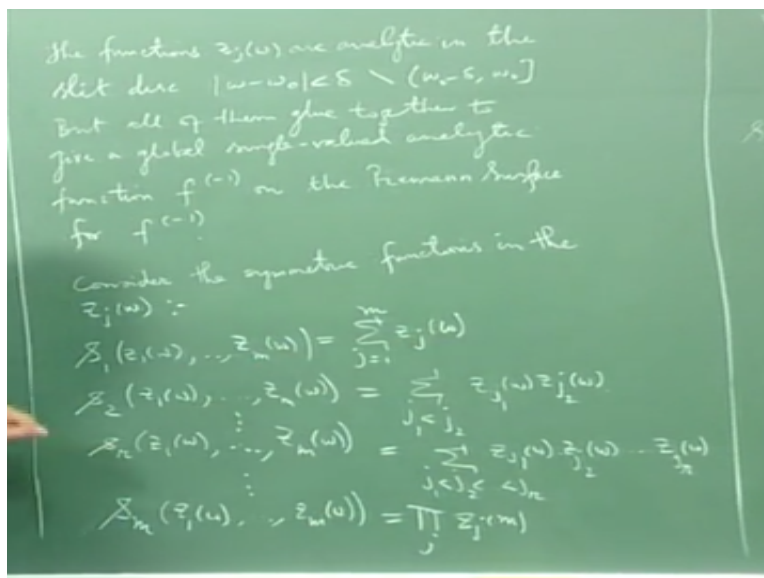 The functions z_j(w) are analytic in the
slit disc |w-w_0|<δ \ (w_0-δ, w_0]
But all of them glue together to
give a global single-valued analytic
function f^(-1) on the Riemann Surface
for f^(-1).
Consider the symmetric functions in the
z_j(w) :-
S_1(z_1(w), .., z_m(w)) = ∑_{j=1}^{m} z_j(w)
S_2(z_1(w), .., z_m(w)) = ∑_{j_1<j_2} z_{j_1}(w) z_{j_2}(w)
⋮
S_r(z_1(w), ..., z_m(w)) = ∑_{j_1<j_2< <j_r} z_{j_1}(w) z_{j_2}(w) .. z_{j_r}(w)
⋮
S_m(z_1(w), .., z_m(w)) = ∏_j z_j(m)
S